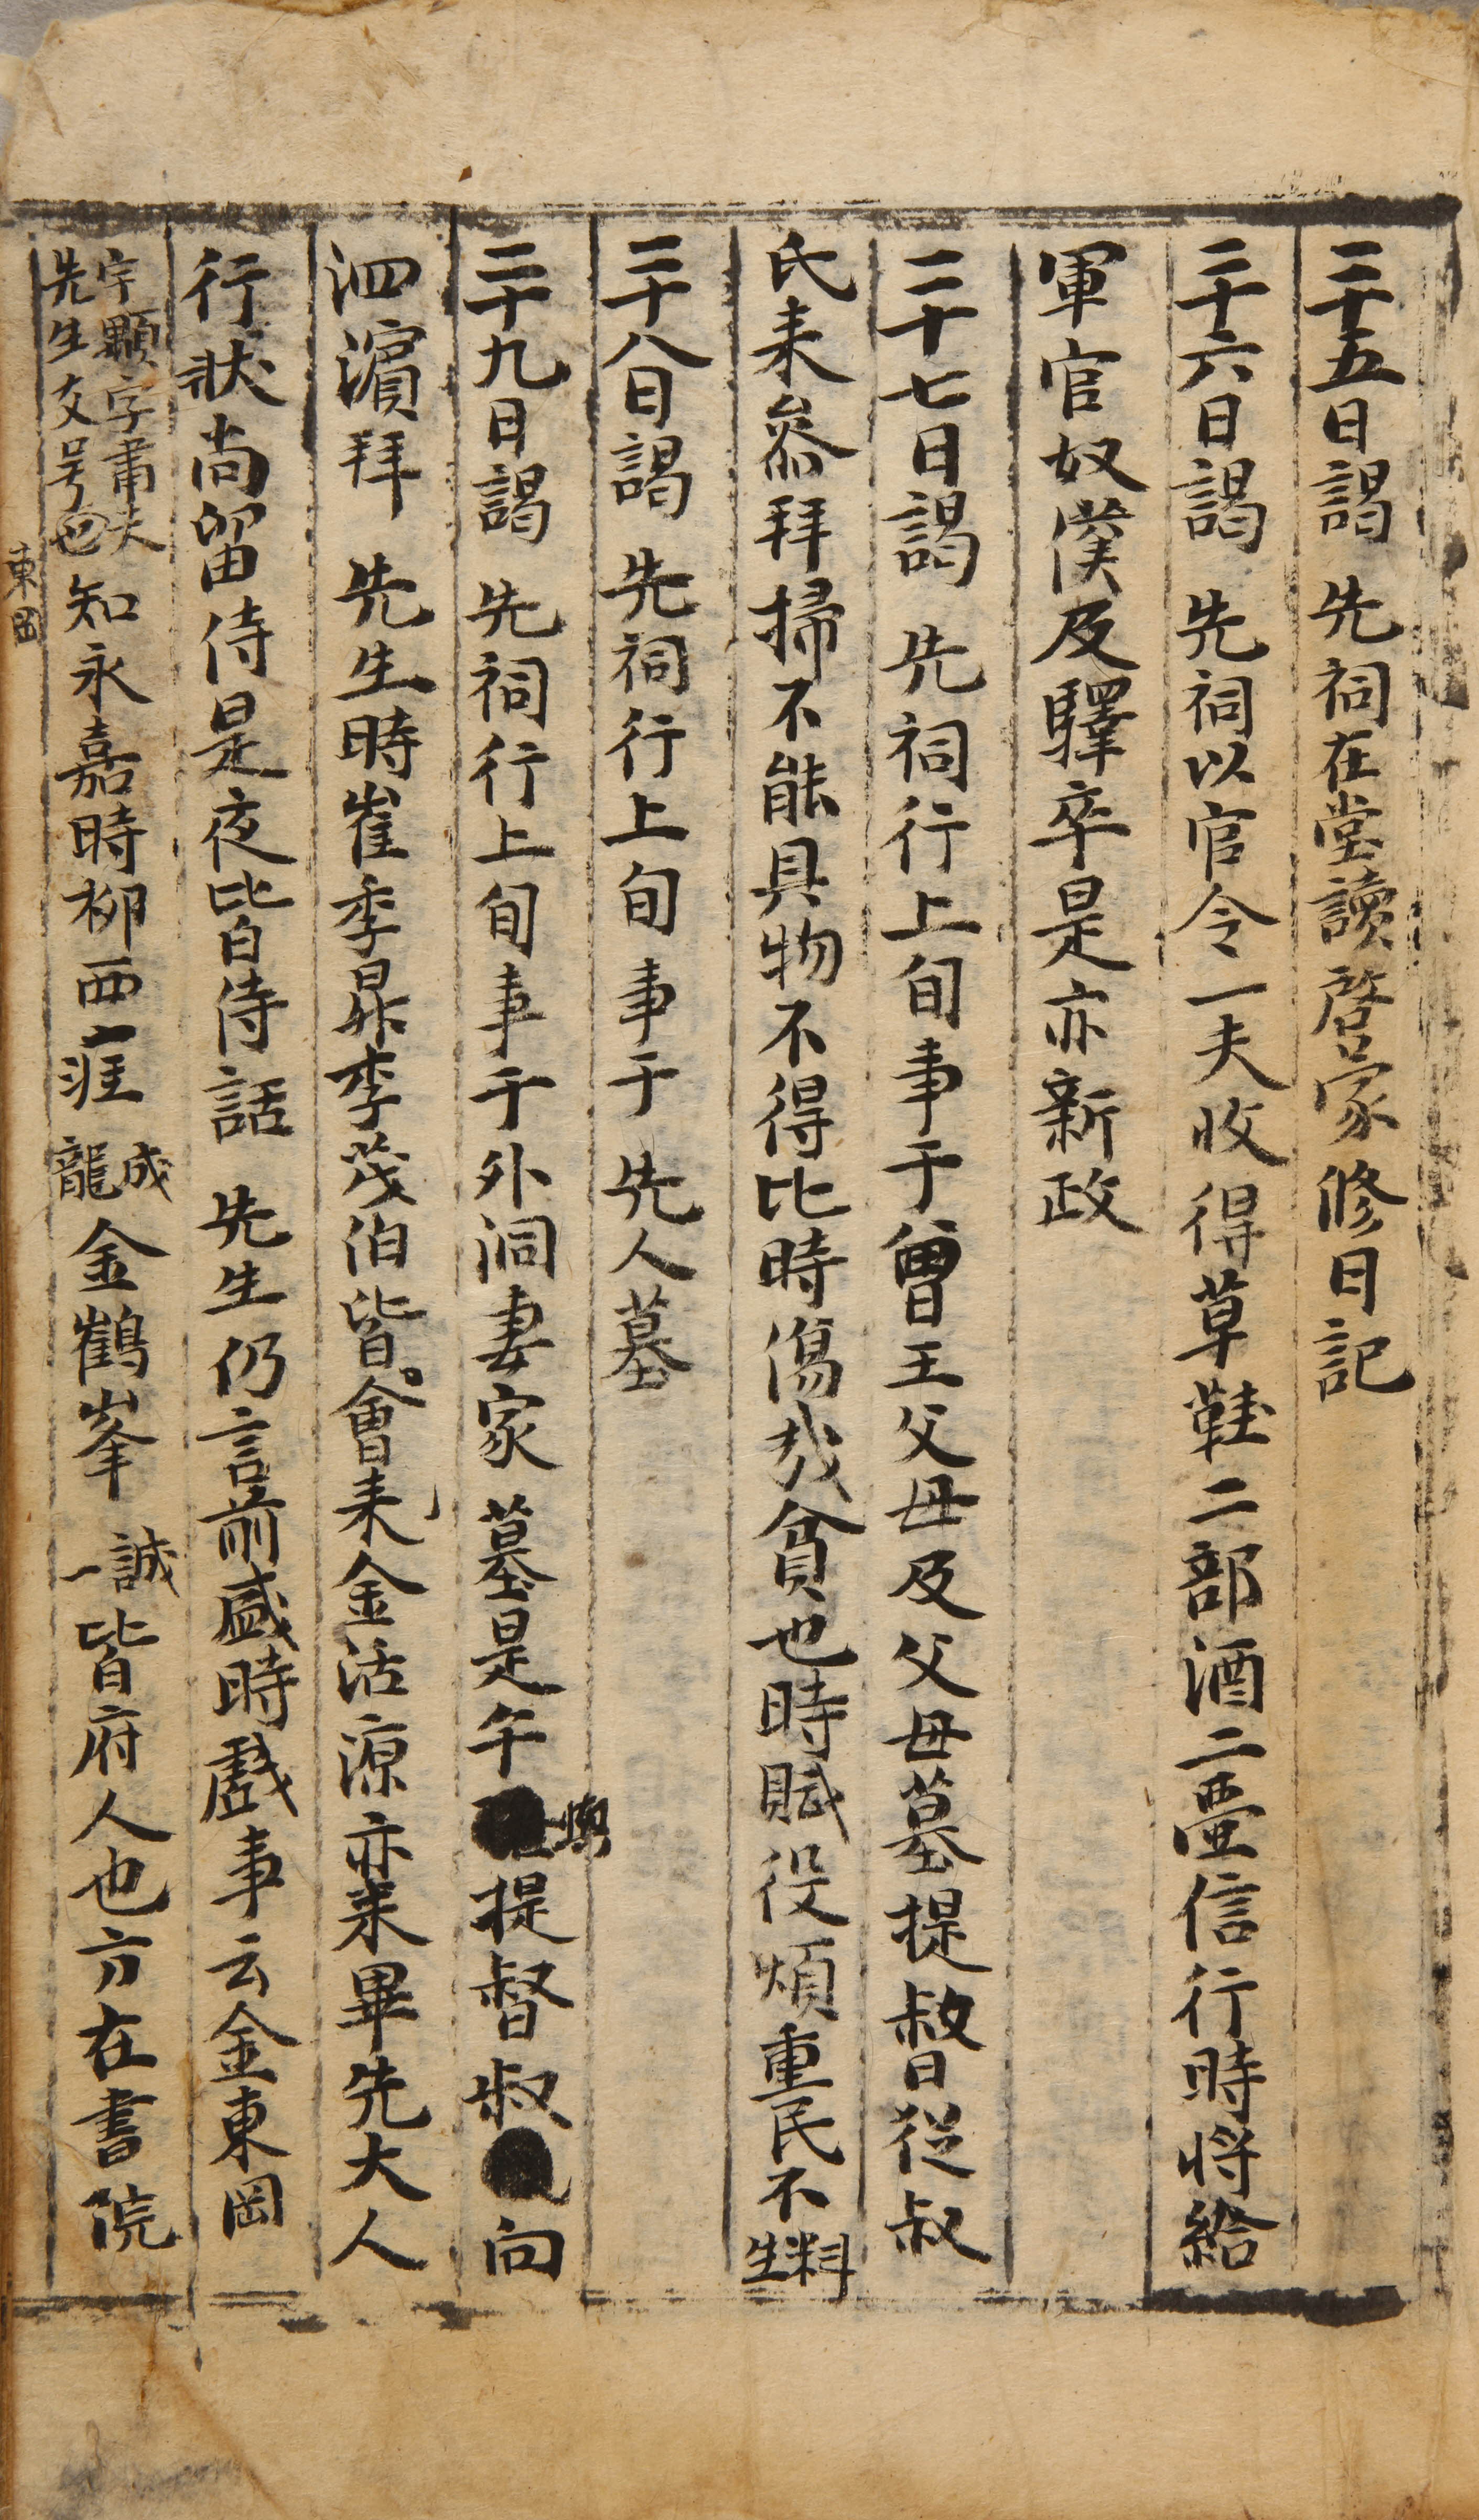 二十五日謁 先祠在堂讀啓蒙修日記
二十六日謁 先祠以官令一夫收得草鞋二部酒二壷信行時將給
軍官奴漢及驛卒是亦新政
二十七日謁 先祠行上旬事于曾王父母及父母墓提督從叔
氏来叅拜掃不能具物不得比時傷哉貧也時賦役煩重民不料生
二十八日謁 先祠行上旬事于 先人墓
二十九日謁 先祠行上旬事于外洞妻家 墓是午與提督叔向
泗濵拜 先生時崔季昇李茂伯皆會来金活源亦来畢先大人
行狀尚留侍是夜皆侍話 先生仍言前盛時戱事云金東岡
宇顒字肅夫
先生友号也
東岡
知永嘉時柳西涯成龍金鶴峯誠一皆府人也方在書院